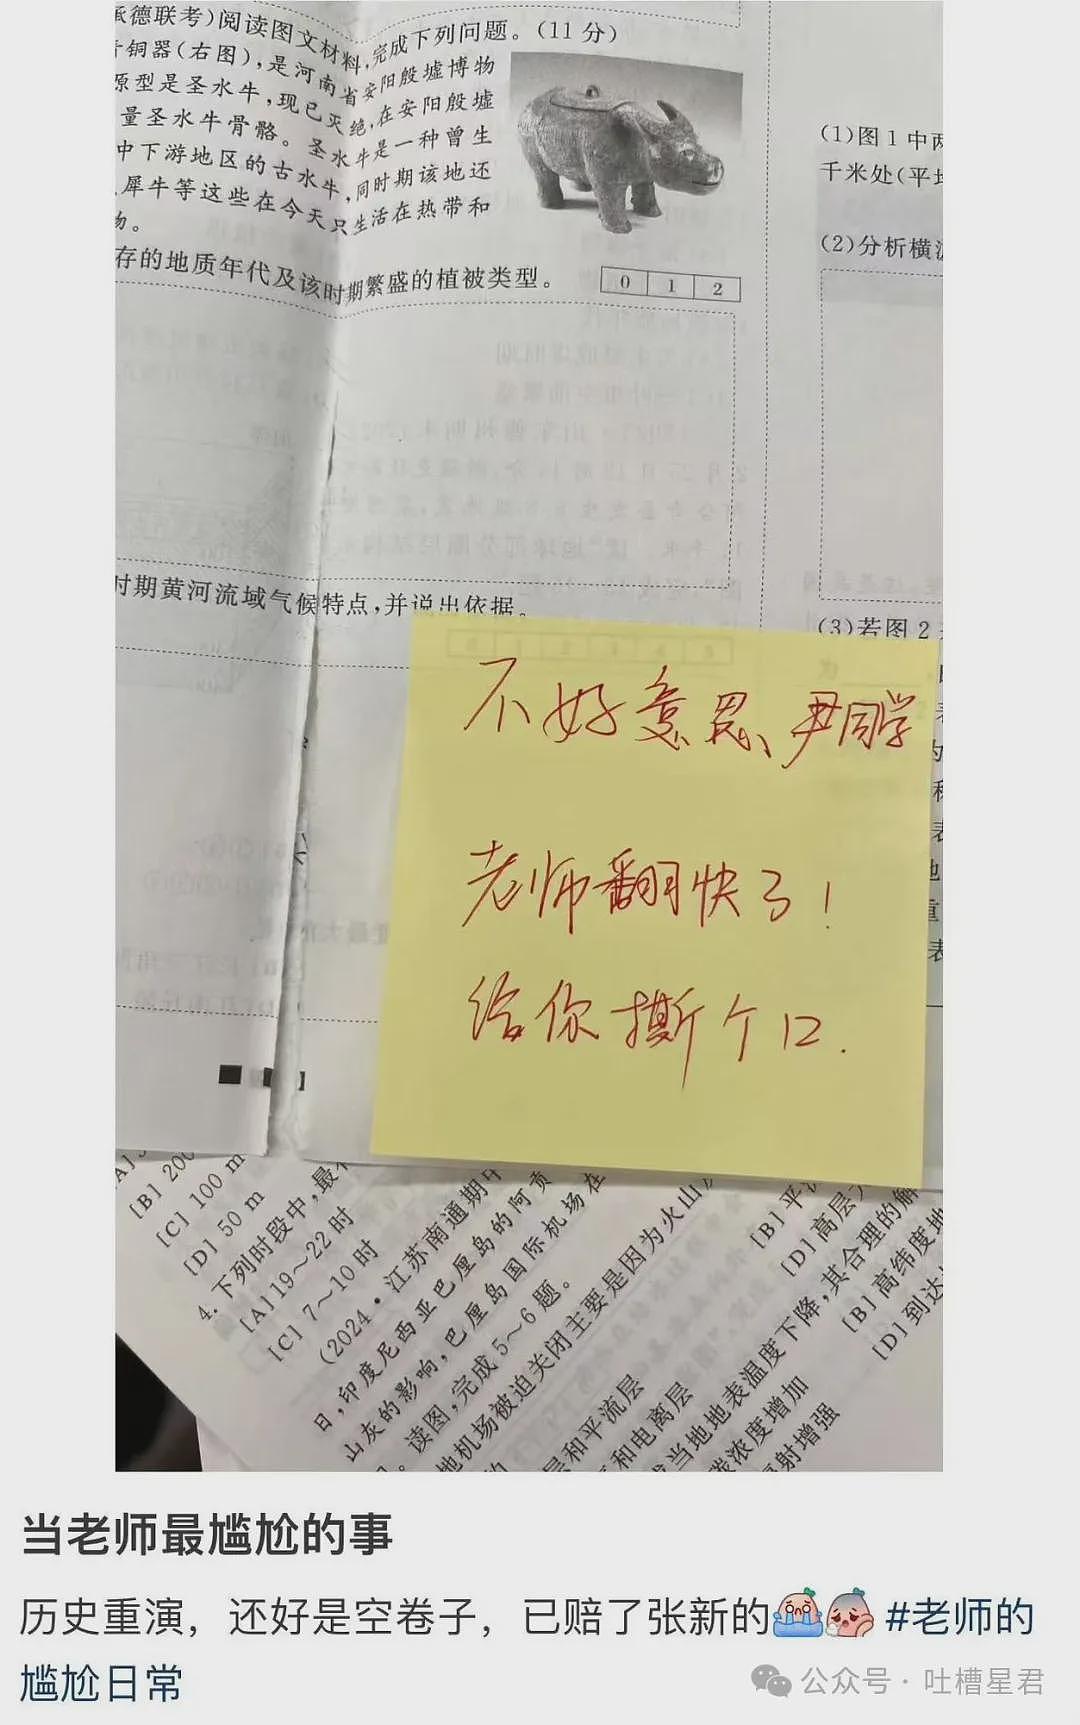 承德联考)阅读图文材料,完成下列问题。(11分)
铜器(右图),是河南省安阳殷墟博物
原型是圣水牛,现已灭绝,在安阳殷墟
量圣水牛骨骼。圣水牛是一种曾生
中下游地区的古水牛,同时期该地还
犀牛等这些在今天只生活在热带和
物。
存的地质年代及该时期繁盛的植被类型。
0 1 2
时期黄河流域气候特点,并说出依据。
(1)图1中两
千米处(平均
(2)分析横
(3)若图2
不好意思、尹同学
老师翻快了!
给你撕个口.
[B] 200
[C] 100 m
[D] 50 m
4. 下列时段中,最
[A] 19～22时
[C] 7～10时
(2024·江苏南通期中
日,印度尼西亚巴厘岛的阿贡
山灰的影响,巴厘岛国际机场在
。读图,完成5～6题。
地机场被迫关闭主要是因为火山
层和平流层
和电离层
当地地表温度下降,其合理的解
碳浓度增加
射增强
[B] 平流
[D] 高层
[B] 高纬度地
[D] 到达
当老师最尴尬的事
历史重演，还好是空卷子，已赔了张新的 #老师的
尴尬日常
公众号·吐槽星君